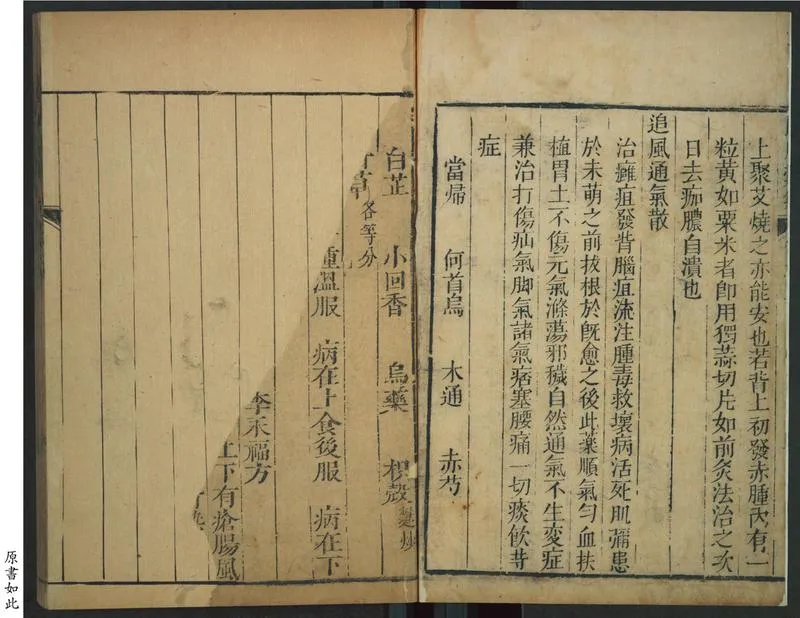 上聚艾燒之亦能安也若背上初發赤腫內有一
粒黃如粟米者卽用獨蒜切片如前灸法治之次
日去痂膿自潰也
追風通氣散
治癰疽發背腦疽流注腫毒救壞病活死肌彌患
於未萌之前拔根於旣愈之後此藥順氣勻血扶
植胃土不傷元氣滌蕩邪穢自然通氣不生変症
兼治打傷疝氣脚氣諸氣痞塞腰痛一切痰飲等
症
當帰 何首烏 木通 赤芍
白芷 小回香 烏藥 枳殼麸炒
甘草各等分
溫服 病在上食後服 病在下
李永福方
上下有瘡腸風
原書如此